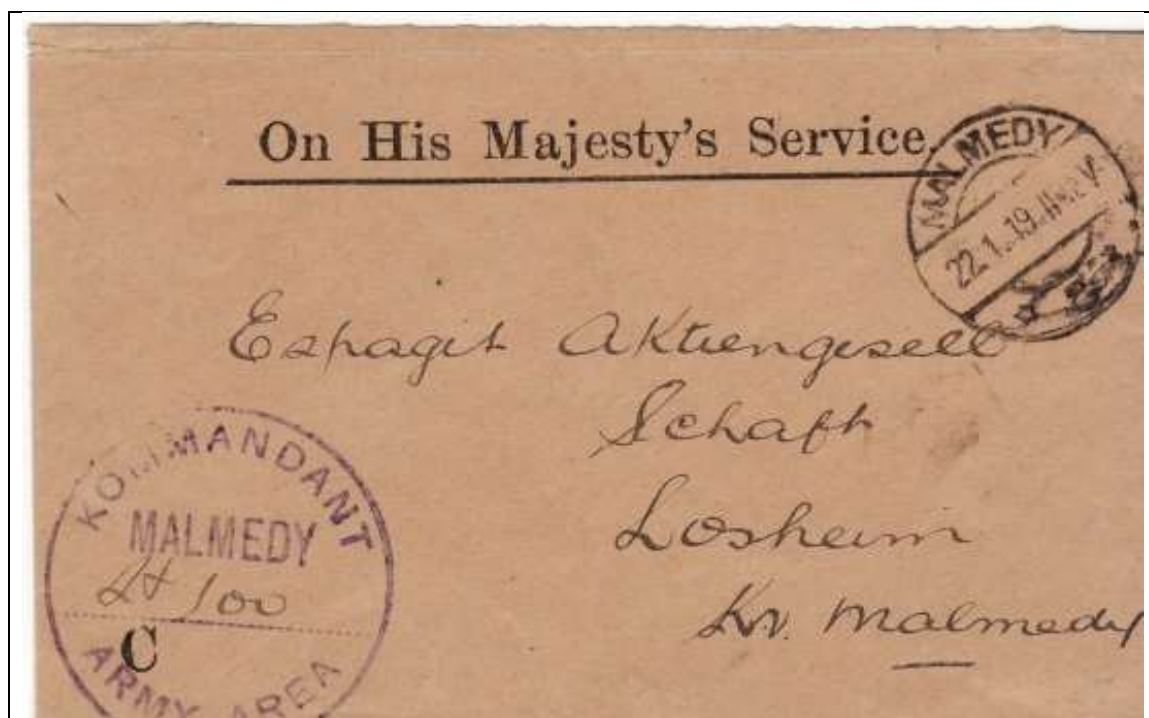 On His Majesty's Service.
MALMEDY
22.1.19.11-12 V
Espagit Aktiengesell
Schaft
Losheim
Kr. Malmedy
KOMMANDANT
MALMEDY
100
C
ARMY AREA